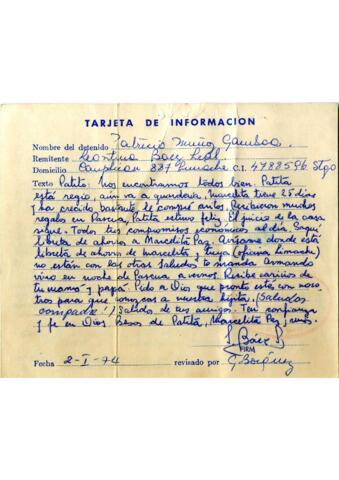 TARJETA DE INFORMACION
Nombre del detenido Patricio Muñoz Gamboa.
Remitente Leontina Báez Leal
Domicilio 837 Limache C.I. 4788596 Stgo
Texto Patito: Nos encontramos todos bien. Patita
está regio, aún va a guardería, Marcelita tiene 25 días
y ha crecido bastante, le compré aritos. Recibieron muchos
regalos en Pascua, Patita estuvo feliz. El juicio de la casa
sigue. Todos tus compromisos económicos al día. Saqué
libreta de ahorro a Marcelita Paz. Avísame donde está
libreta de ahorro de Marcelita y tuya (oficina Limache)
no están con las otras. Saludos te manda Armando
vino en noche de Pascua a vernos. Recibe cariños de
tu mamá y papá. Pido a Dios que pronto estés con noso
tros para que conozcas a nuestra hijita. (Saludos
compadre!) Saludos de tus amigos. Ten confianza
y fe en Dios. Besos de Patita, Marcelita Paz,
Báez
FIRM
Fecha 2-I-74 revisado por